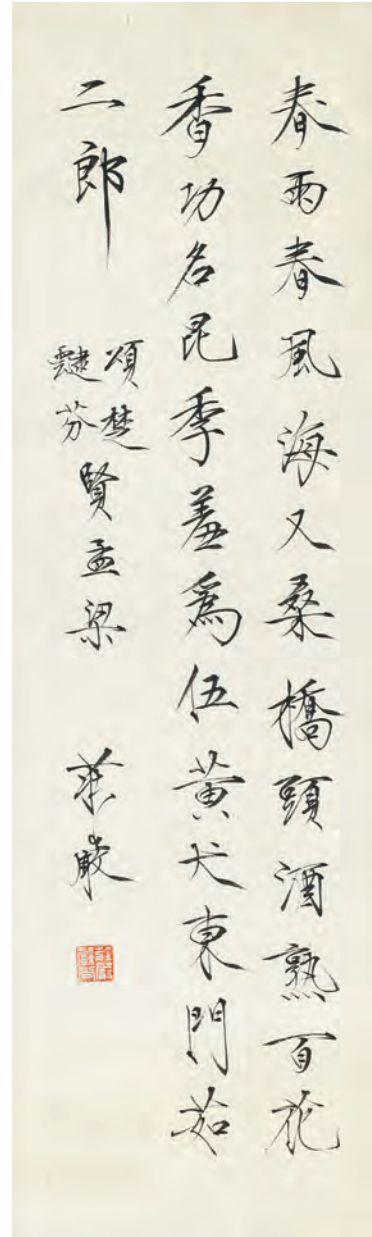 春雨春風海又桑橋頭酒熟百花
香功名昆季羞爲伍黃犬東門茹
二郎
頌楚
芬
賢孟梁
莊嚴